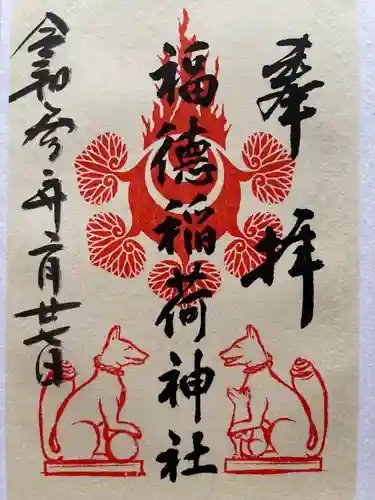 奉拝
福徳稲荷神社
令和参年二月廿七日